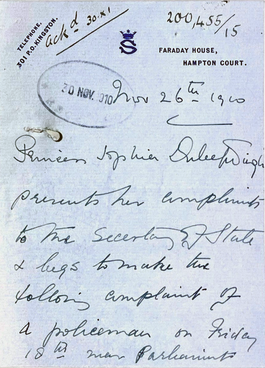 TELEPHONE.
301 P.O. KINGSTON.
ackd 30.XI
200,455/15
S
FARADAY HOUSE,
HAMPTON COURT.
30 NOV. 1910
Nov 26th 1910
Princess Sophia Duleep Singh
presents her compliments
to the Secretary of State
& begs to make the
following complaint of
a policeman on Friday
18th near Parliament